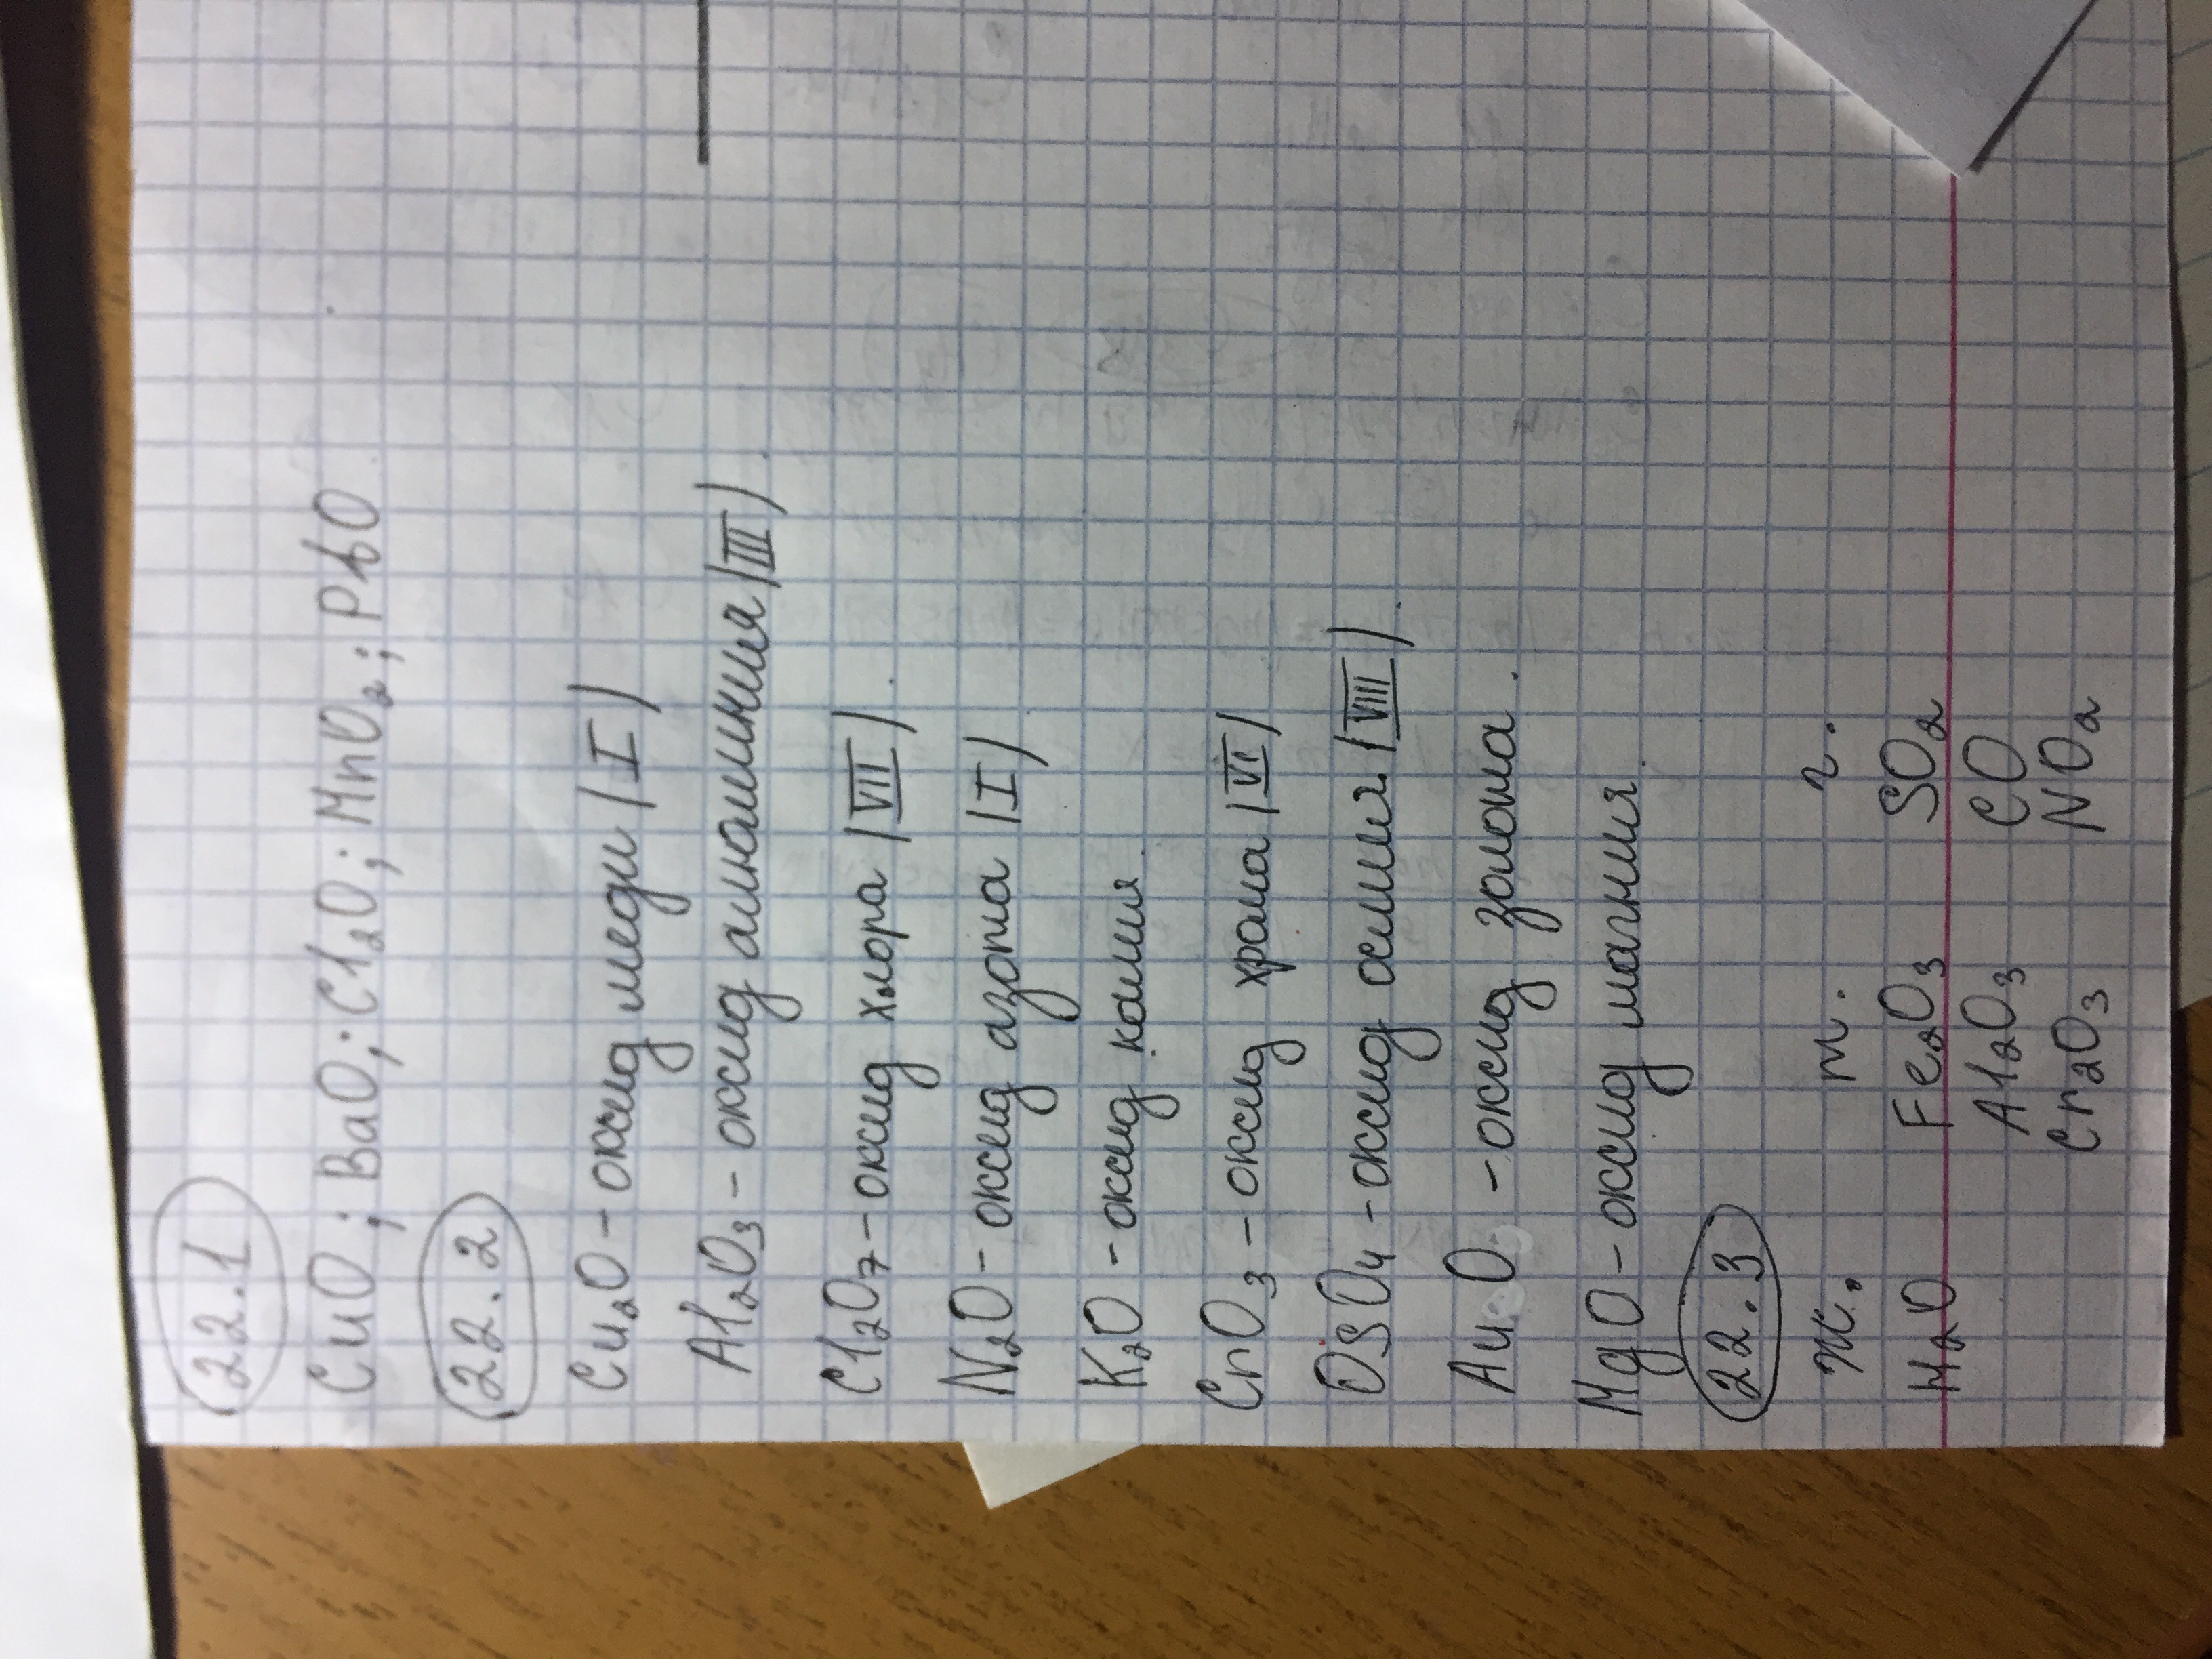 22.1
CuO; BaO; Cl₂O; MnO₂; PbO
22.2
Cu₂O - оксид меди (I)
Al₂O₃ - оксид алюминия (III).
Cl₂O₇ - оксид хлора (VII).
N₂O - оксид азота (I)
K₂O - оксид калия.
CrO₃ - оксид хрома (VI)
OsO₄ - оксид осмия (VIII).
Au O - оксид золота.
MgO - оксид магния.
22.3
ж. т. г.
H₂O Fe₂O₃ SO₂
Al₂O₃ CO
Cr₂O₃ NO₂